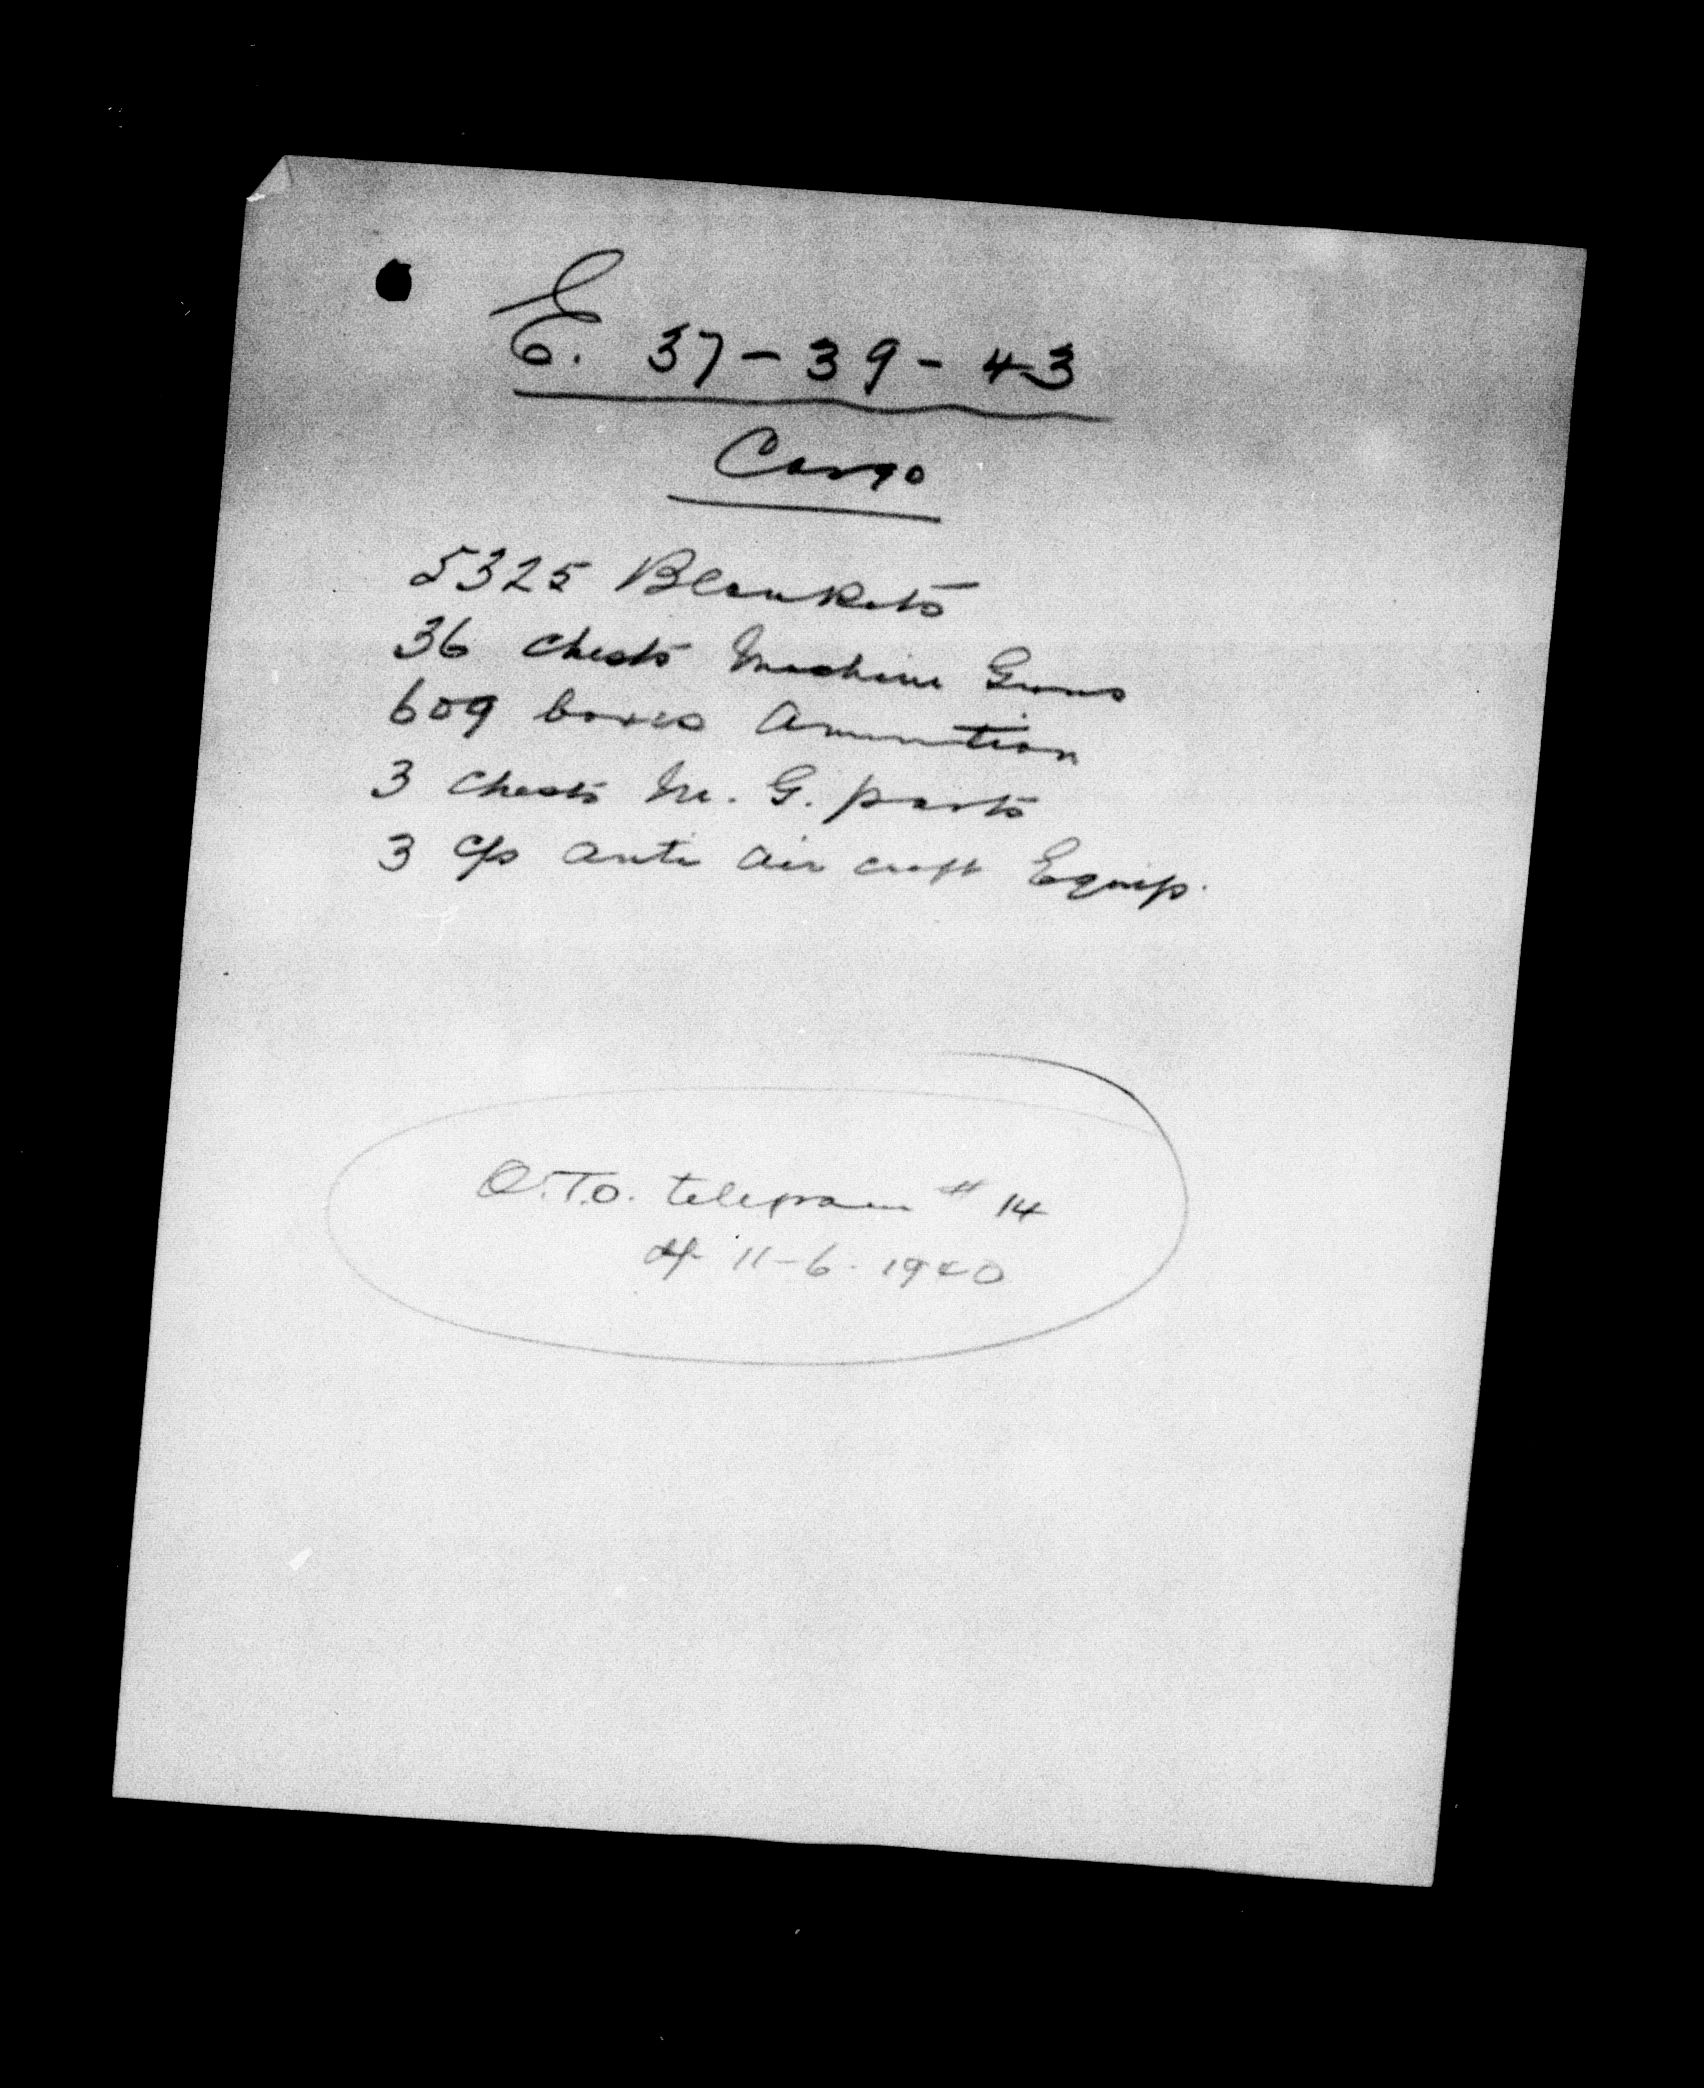 E. 37-39-43
Cargo
5325 Blankets
36 chests Machine Guns
609 boxes Amunition
3 chests M. G. parts
3 c/s anti air craft Equip.
O.T.O. telegram # 14
df 11-6-1940